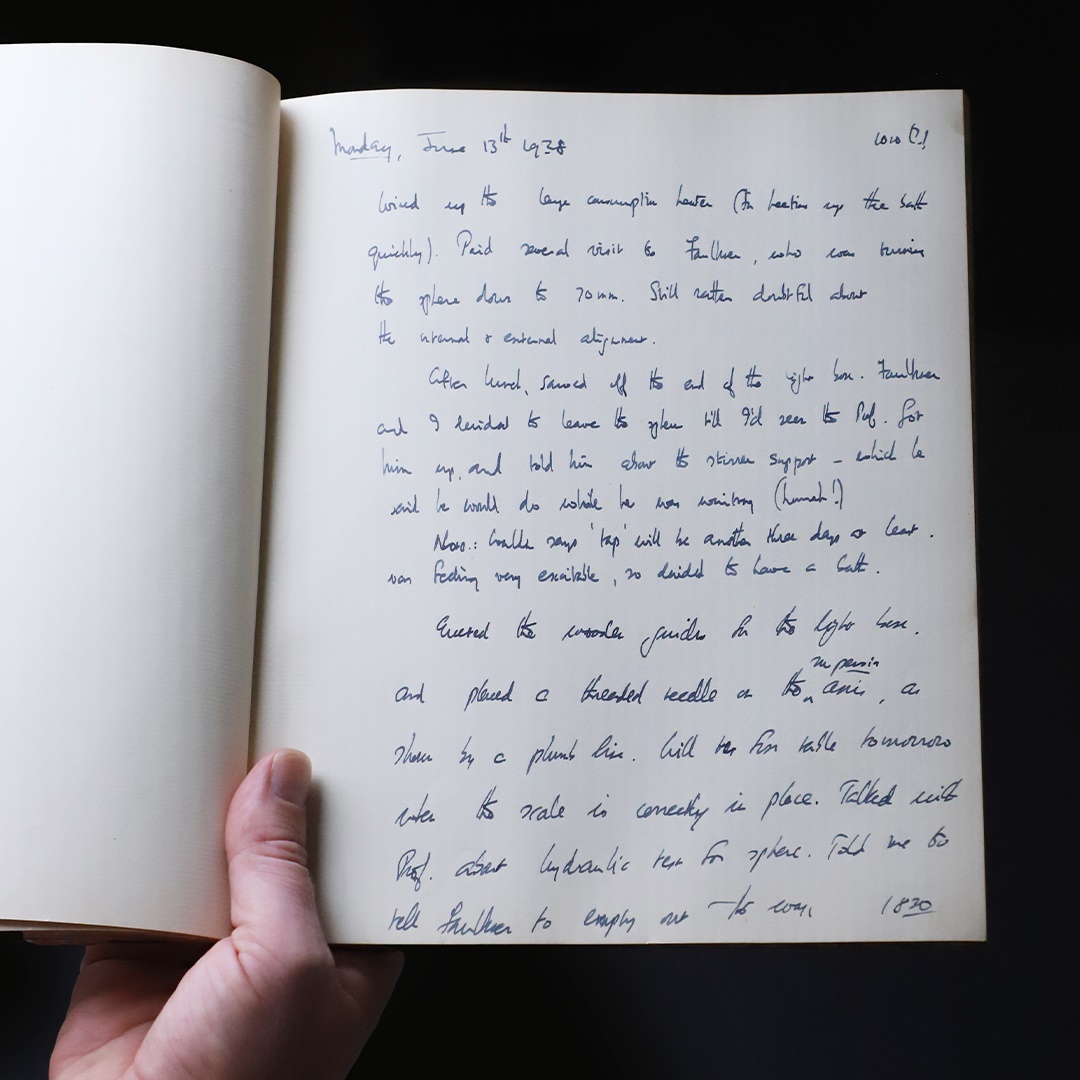 Monday, June 13th 1938 1010 (?)
Wired up the large consumption heater (for heating up the bath
quickly). Paid several visit to Faulkner, who was turning
the sphere down to 70 mm. Still rather doubtful about
the internal & external alignment.
After lunch, sawed off the end of the light box. Faulkner
and I decided to leave the sphere till I'd seen the Prof. Got
him up, and told him about the stirrer support – which he
said he would do while he was waiting (hurrah!)
says 'tap' will be another three days at least.
was feeling very excitable, so decided to have a bath.
Erected the wooden guides for the light box.
and placed a threaded needle on the axis, as
shown by a plumb line. Will test for table tomorrow
when the scale is correctly in place. Talked with
Prof. about hydraulic test for sphere. Told me to
tell Faulkner to empty out the 1830